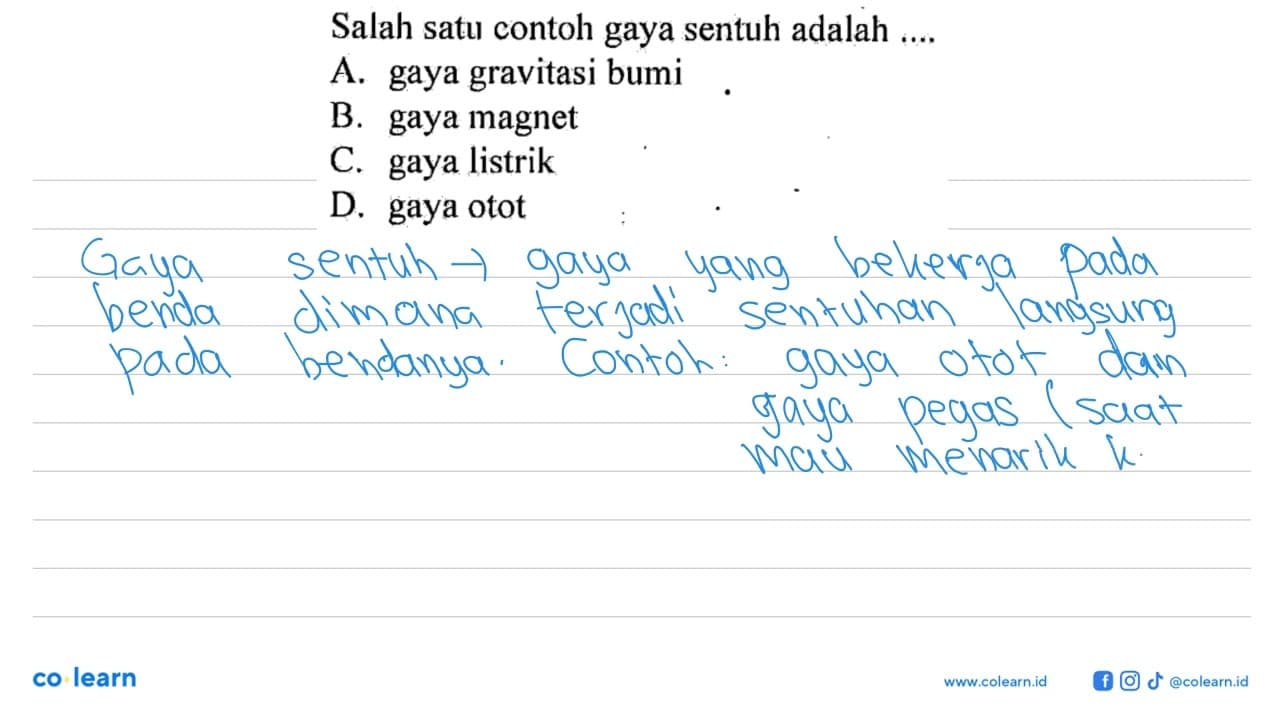 Salah satu contoh gaya sentuh adalah ....
A. gaya gravitasi bumi
B. gaya magnet
C. gaya listrik
D. gaya otot
Gaya sentuh → gaya yang bekerja pada
benda dimana terjadi sentuhan langsung
pada bendanya. Contoh: gaya otot dan
gaya pegas (saat
mau menarik k.
co learn
www.colearn.id
@colearn.id